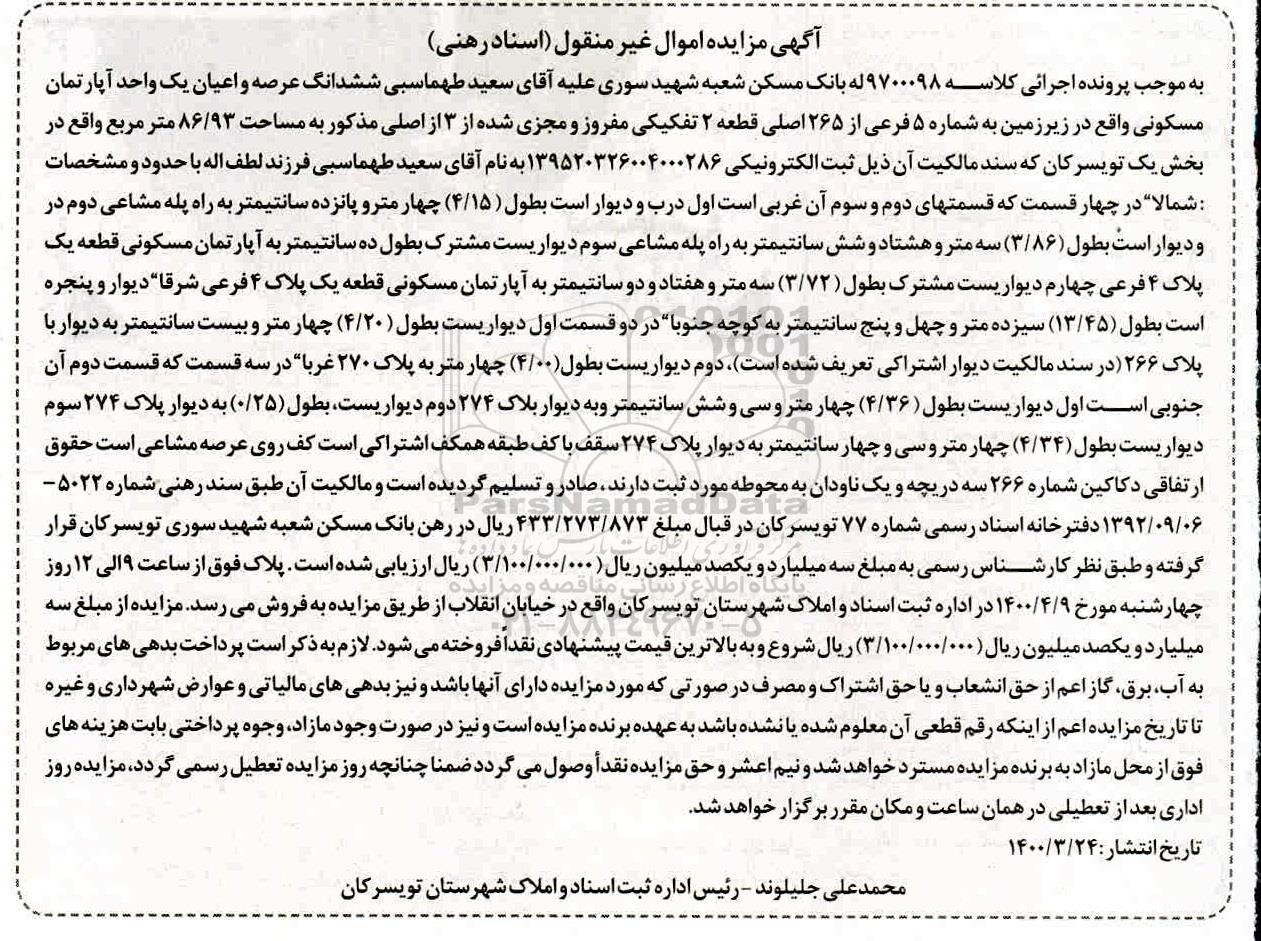 آگهی مزایده اموال غیر منقول (اسناد رهنی)
به موجب پرونده اجرائی کلاسه ۹۷۰۰۰۹۸ له بانک مسکن شعبه شهید سوری علیه آقای سعید طهماسبی ششدانگ عرصه و اعیان یک واحد آپارتمان
مسکونی واقع در زیرزمین به شماره ۵ فرعی از ۲۶۵ اصلی قطعه ۲ تفکیکی مفروز و مجزی شده از ۳ از اصلی مذکور به مساحت ۸۶/۹۳ متر مربع واقع در
بخش یک تویسرکان که سند مالکیت آن ذیل ثبت الکترونیکی ۱۳۹۵۲۰۳۲۶۰۰۴۰۰۰۲۸۶ به نام آقای سعید طهماسبی فرزند لطف اله با حدود و مشخصات
: شمالا“ در چهار قسمت که قسمتهای دوم و سوم آن غربی است اول درب و دیوار است بطول (۴/۱۵) چهار متر و پانزده سانتیمتر به راه پله مشاعی دوم در
و دیوار است بطول (۳/۸۶) سه متر و هشتاد و شش سانتیمتر به راه پله مشاعی سوم دیواریست مشترک بطول ده سانتیمتر به آپارتمان مسکونی قطعه یک
پلاک ۴ فرعی چهارم دیواریست مشترک بطول (۳/۷۲) سه متر و هفتاد و دو سانتیمتر به آپارتمان مسکونی قطعه یک پلاک ۴ فرعی شرقا“ دیوار و پنجره
است بطول (۱۳/۴۵) سیزده متر و چهل و پنج سانتیمتر به کوچه جنوبا“ در دو قسمت اول دیواریست بطول (۴/۲۰) چهار متر و بیست سانتیمتر به دیوار با
پلاک ۲۶۶ (در سند مالکیت دیوار اشتراکی تعریف شده است)، دوم دیواریست بطول (۴/۰۰) چهار متر به پلاک ۲۷۰ غربا“ در سه قسمت که قسمت دوم آن
جنوبی است اول دیواریست بطول (۴/۳۶) چهار متر و سی و شش سانتیمتر وبه دیوار بلاک ۲۷۴ دوم دیواریست، بطول (۰/۲۵) به دیوار پلاک ۲۷۴ سوم
دیواریست بطول (۴/۳۴) چهار متر و سی و چهار سانتیمتر به دیوار پلاک ۲۷۴ سقف با کف طبقه همکف اشتراکی است کف روی عرصه مشاعی است حقوق
ارتفاقی دکاکین شماره ۲۶۶ سه دریچه و یک ناودان به محوطه مورد ثبت دارند، صادر و تسلیم گردیده است و مالکیت آن طبق سند رهنی شماره ۵۰۲۲-
۱۳۹۲/۰۹/۰۶ دفترخانه اسناد رسمی شماره ۷۷ تویسرکان در قبال مبلغ ۴۳۳/۲۷۳/۸۷۳ ریال در رهن بانک مسکن شعبه شهید سوری تویسرکان قرار
گرفته و طبق نظر کارشناس رسمی به مبلغ سه میلیارد و یکصد میلیون ریال (۳/۱۰۰/۰۰۰/۰۰۰) ریال ارزیابی شده است. پلاک فوق از ساعت ۹ الی ۱۲ روز
چهارشنبه مورخ ۱۴۰۰/۴/۹ در اداره ثبت اسناد و املاک شهرستان تویسرکان واقع در خیابان انقلاب از طریق مزایده به فروش می رسد. مزایده از مبلغ سه
میلیارد و یکصد میلیون ریال (۳/۱۰۰/۰۰۰/۰۰۰) ریال شروع و به بالاترین قیمت پیشنهادی نقداً فروخته می شود. لازم به ذکر است پرداخت بدهی های مربوط
به آب، برق، گاز اعم از حق انشعاب و یا حق اشتراک و مصرف در صورتی که مورد مزایده دارای آنها باشد و نیز بدهی های مالیاتی و عوارض شهرداری و غیره
تا تاریخ مزایده اعم از اینکه رقم قطعی آن معلوم شده یا نشده باشد به عهده برنده مزایده است و نیز در صورت وجود مازاد، وجوه پرداختی بابت هزینه های
فوق از محل مازاد به برنده مزایده مسترد خواهد شد و نیم اعشر و حق مزایده نقداً وصول می گردد ضمنا چنانچه روز مزایده تعطیل رسمی گردد، مزایده روز
اداری بعد از تعطیلی در همان ساعت و مکان مقرر برگزار خواهد شد.
تاریخ انتشار: ۱۴۰۰/۳/۲۴
محمدعلی جلیلوند - رئیس اداره ثبت اسناد و املاک شهرستان تویسرکان
ParsNamadData
پایگاه اطلاع رسانی مناقصه و مزایده
۰۲۱-۸۸۳۴۹۶۷۰-۵